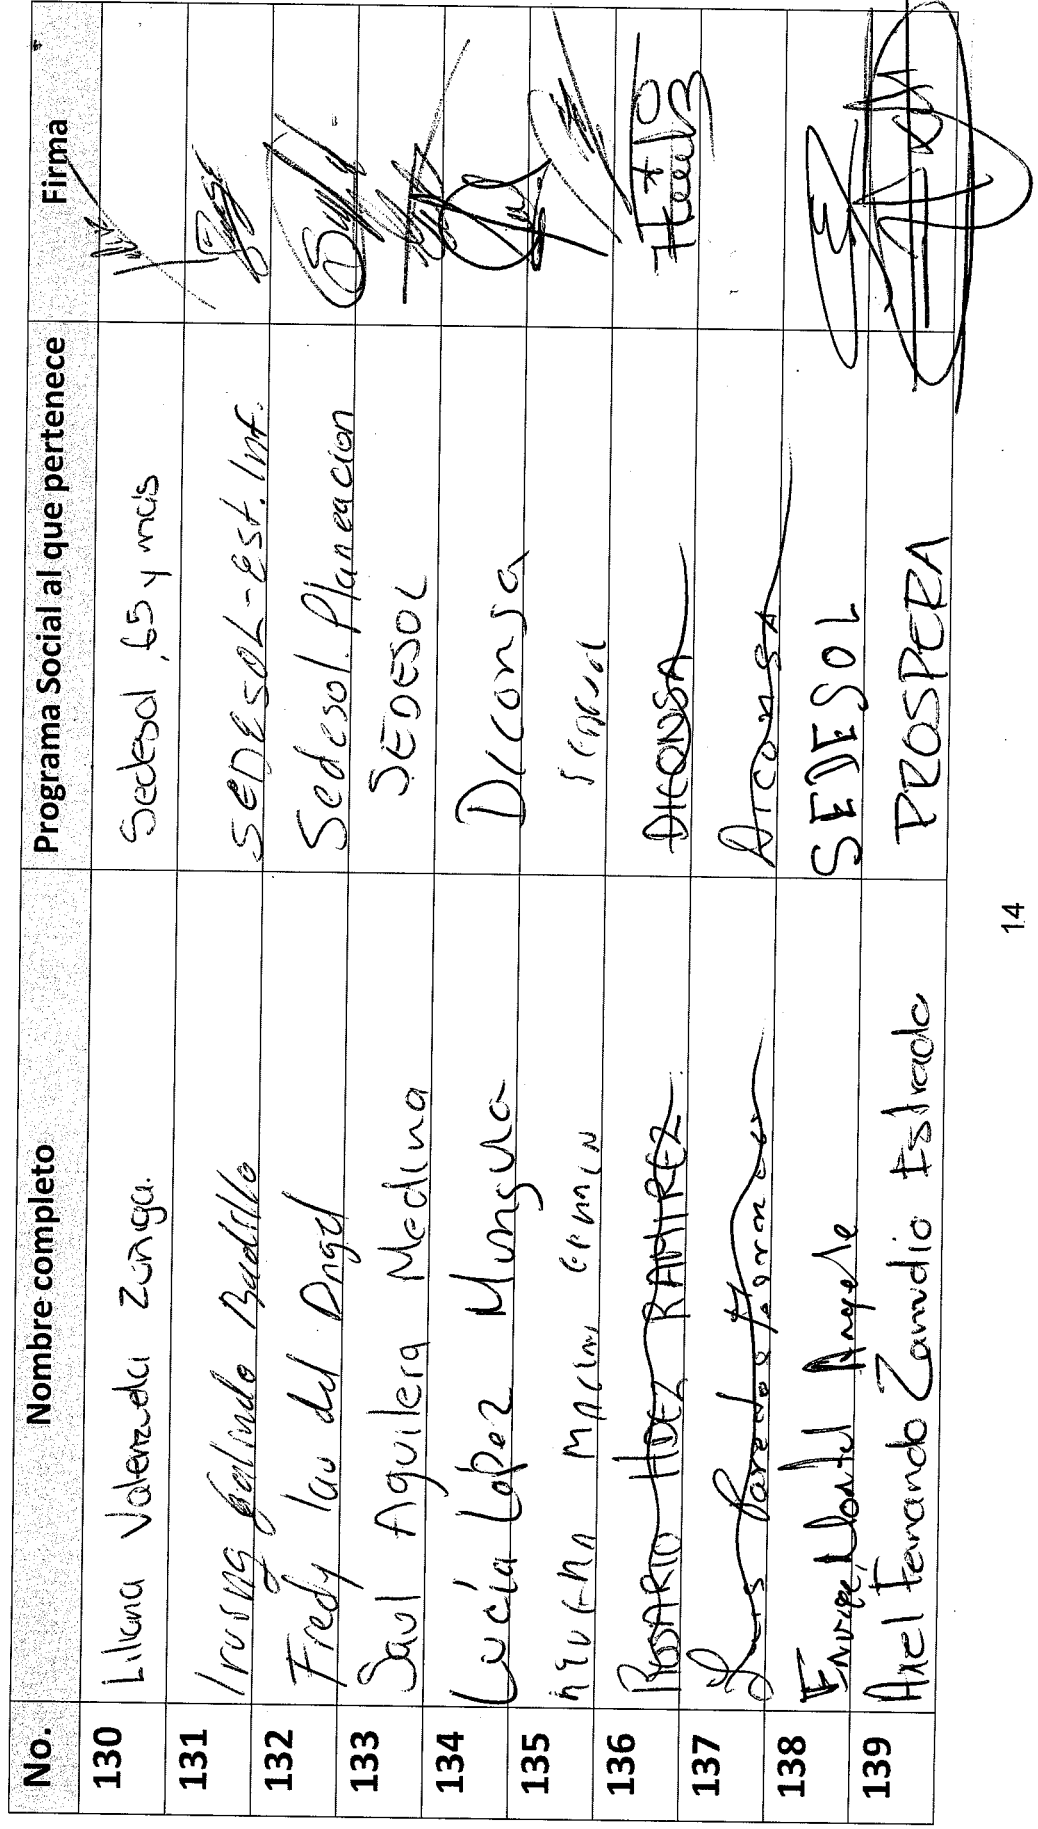 No. Nombre completo Programa Social al que pertenece Firma
130 Liliana Valenzuela Zuñiga. Sedesol, 65 y más
131 Irving Galindo Badillo SEDESOL-Est. Inf.
132 Fredy Lau del Angel Sedesol. Planeacion
133 Saul Aguilera Medina SEDESOL
134 Lucía López Munguia Diconsa
135
136 ROSARIO HDEZ RAMIREZ DICONSA
137 Diconsa
138 Enrique Montiel Angele SEDESOL
139 Axel Fernando Zamudio Estrada PROSPERA
14